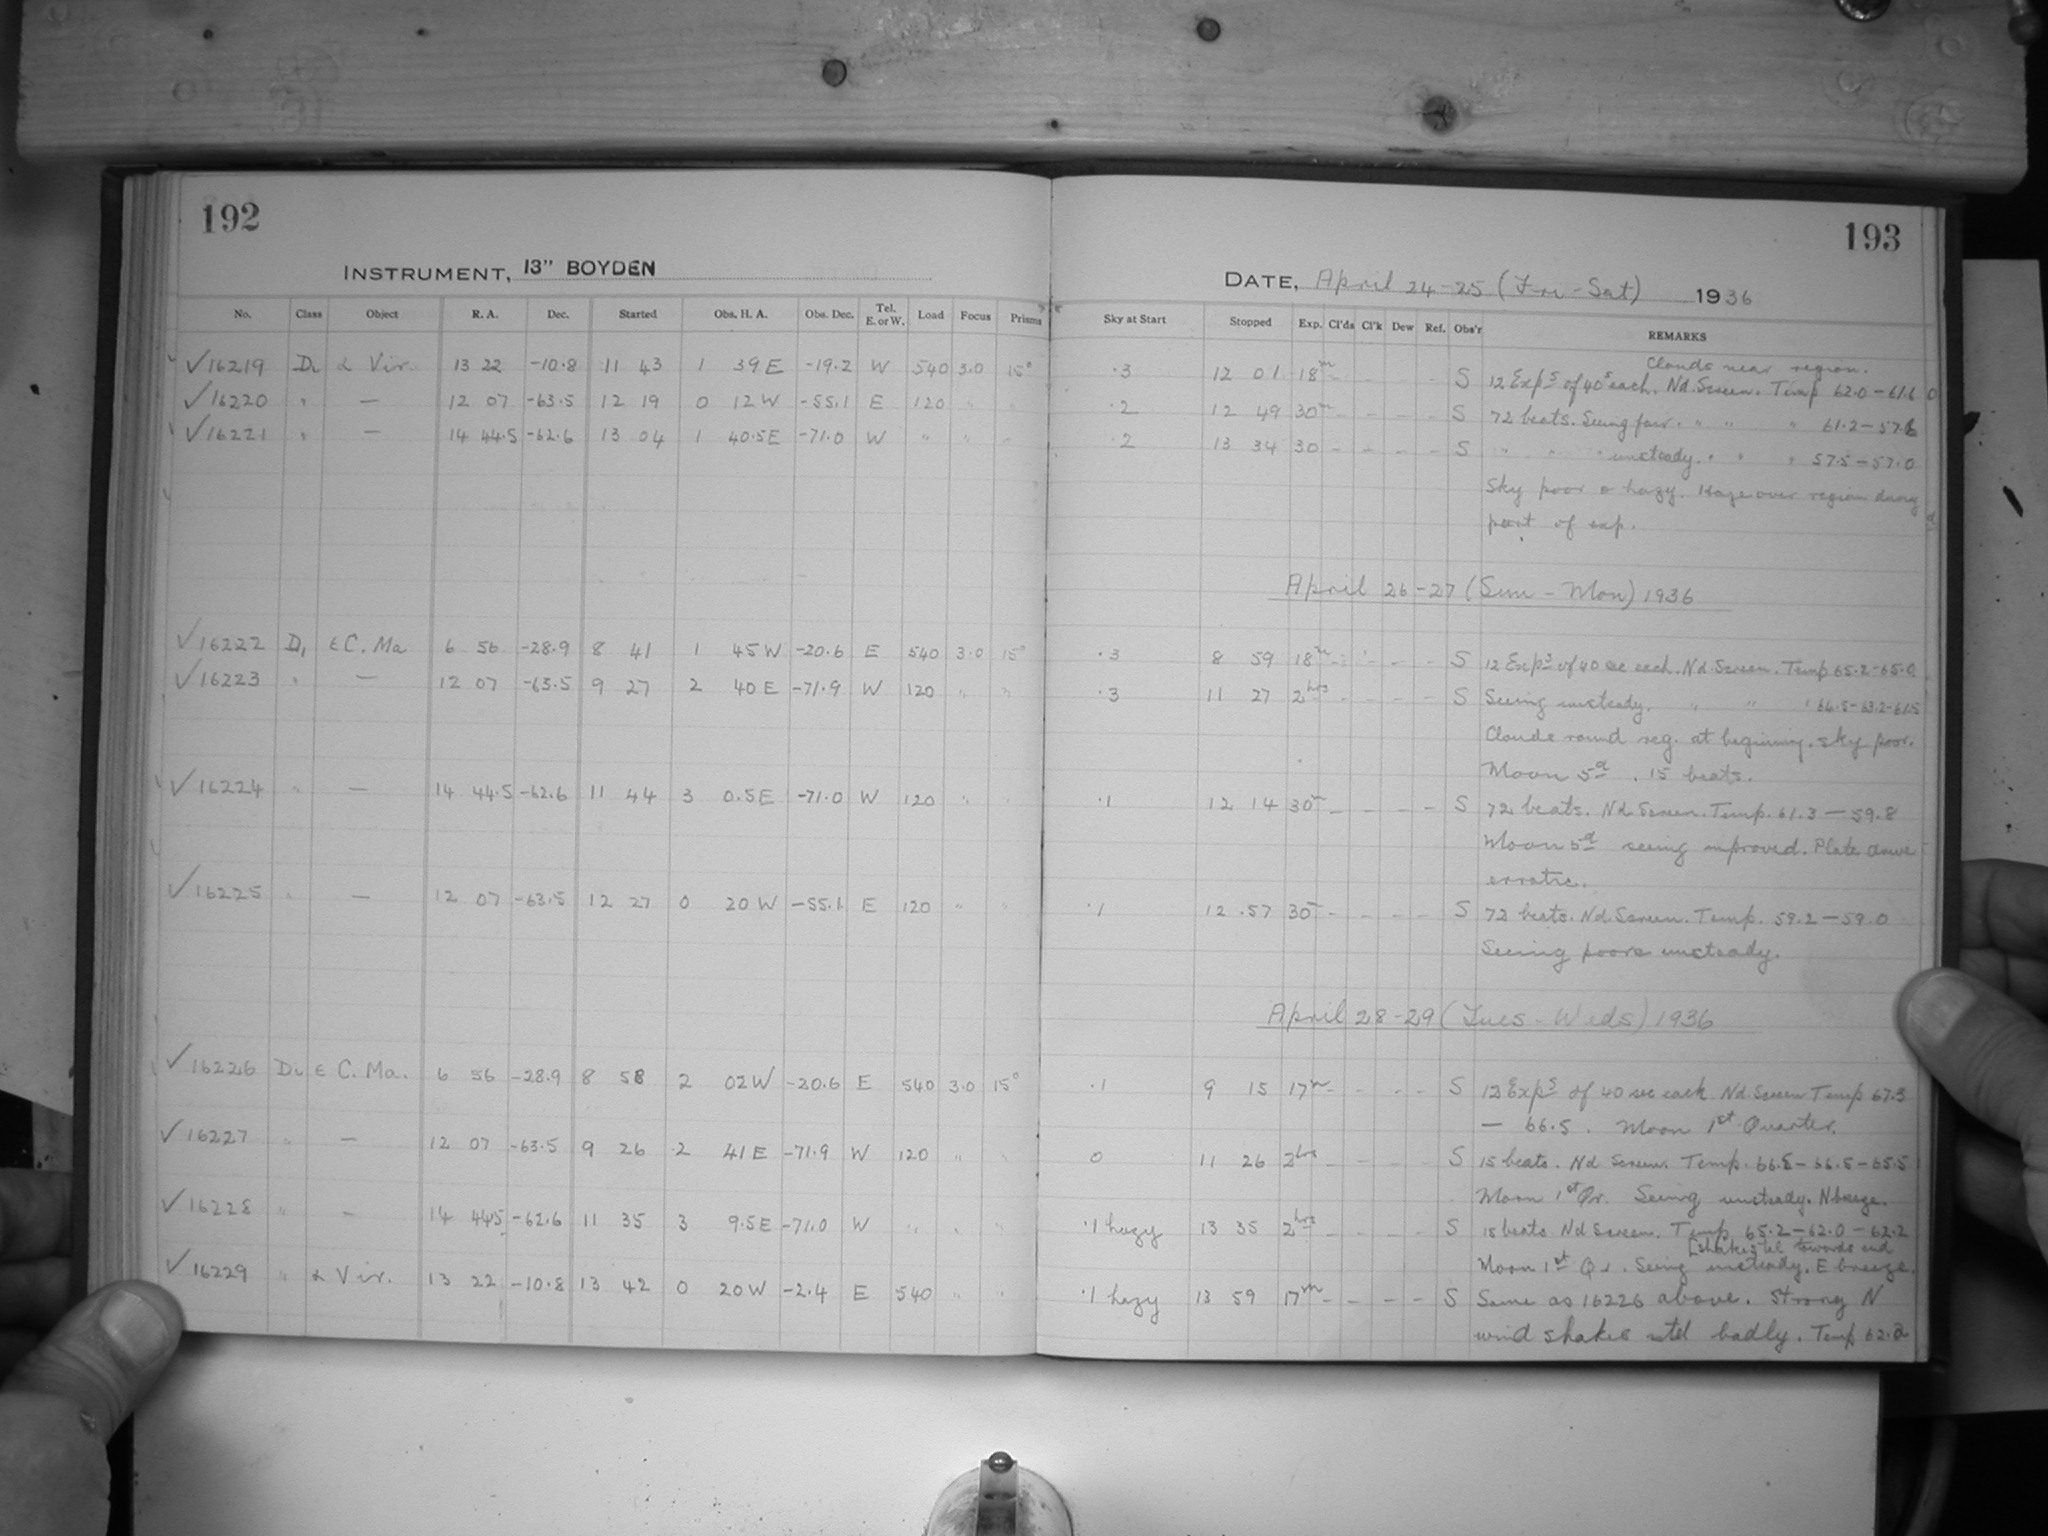 192
INSTRUMENT, 13" BOYDEN
No. Class Object R. A. Dec. Started Obs. H. A. Obs. Dec. Tel. E. or W. Load Focus Prisms
✓16219 D α Vir. 13 22 -10.8 11 43 1 39 E -19.2 W 540 3.0 15°
✓16220 " — 12 07 -63.5 12 19 0 12 W -55.1 E 120 " "
✓16221 " — 14 44.5 -62.6 13 04 1 40.5 E -71.0 W " " "
✓16222 D, ε C. Ma 6 56 -28.9 8 41 1 45 W -20.6 E 540 3.0 15°
✓16223 " — 12 07 -63.5 9 27 2 40 E -71.9 W 120 " "
✓16224 " — 14 44.5 -62.6 11 44 3 0.5 E -71.0 W 120 " "
✓16225 " — 12 07 -63.5 12 27 0 20 W -55.1 E 120 " "
✓16226 D ε C. Ma. 6 56 -28.9 8 58 2 02 W -20.6 E 540 3.0 15°
✓16227 " — 12 07 -63.5 9 26 2 41 E -71.9 W 120 " "
✓16228 " — 14 44.5 -62.6 11 35 3 9.5 E -71.0 W " " "
✓16229 " α Vir. 13 22 -10.8 13 42 0 20 W -2.4 E 540 " "
193
DATE, April 24-25 (Fri - Sat) 1936
Sky at Start Stopped Exp. Cl'ds Cl'k Dew Ref. Obs'r REMARKS
Clouds near region.
.3 12 01 18m - - - - S 12 Exps of 40s each. Nd Screen. Temp 62.0 - 61.6
.2 12 49 30m - - - - S 72 beats. Seeing fair. " " " 61.2 - 57.6
.2 13 34 30 - - - - S " " " unsteady. " " " 57.5 - 57.0
Sky poor & hazy. Haze over region during
part of exp.
April 26-27 (Sun - Mon) 1936
.3 8 59 18m - - - - S 12 Exps of 40 sec each. Nd Screen. Temp 65.2 - 65.0
.3 11 27 2hrs - - - - S Seeing unsteady. " " " 64.5 - 63.2 - 61.5
Clouds round reg. at beginning. sky poor.
Moon 5d. 15 beats.
.1 12 14 30m - - - - S 72 beats. Nd Screen. Temp. 61.3 — 59.8
Moon 5d seeing improved. Plate drive
erratic.
.1 12 57 30m - - - - S 72 beats. Nd Screen. Temp. 59.2 — 59.0
Seeing poor & unsteady.
April 28-29 (Tues - Weds) 1936
.1 9 15 17m - - - - S 12 Exps of 40 sec each Nd Screen Temp 67.3
— 66.5. Moon 1st Quarter.
0 11 26 2hrs - - - - S 15 beats. Nd Screen. Temp. 66.5 - 66.5 - 65.5
Moon 1st Qr. Seeing unsteady. N breeze.
.1 hazy 13 35 2hrs - - - - S 15 beats Nd Screen. Temp. 65.2 - 62.0 - 62.2
[shakes tel towards end
Moon 1st Qr. Seeing unsteady. E breeze.
.1 hazy 13 59 17m - - - - S Same as 16226 above. Strong N
wind shakes tel badly. Temp 62.2